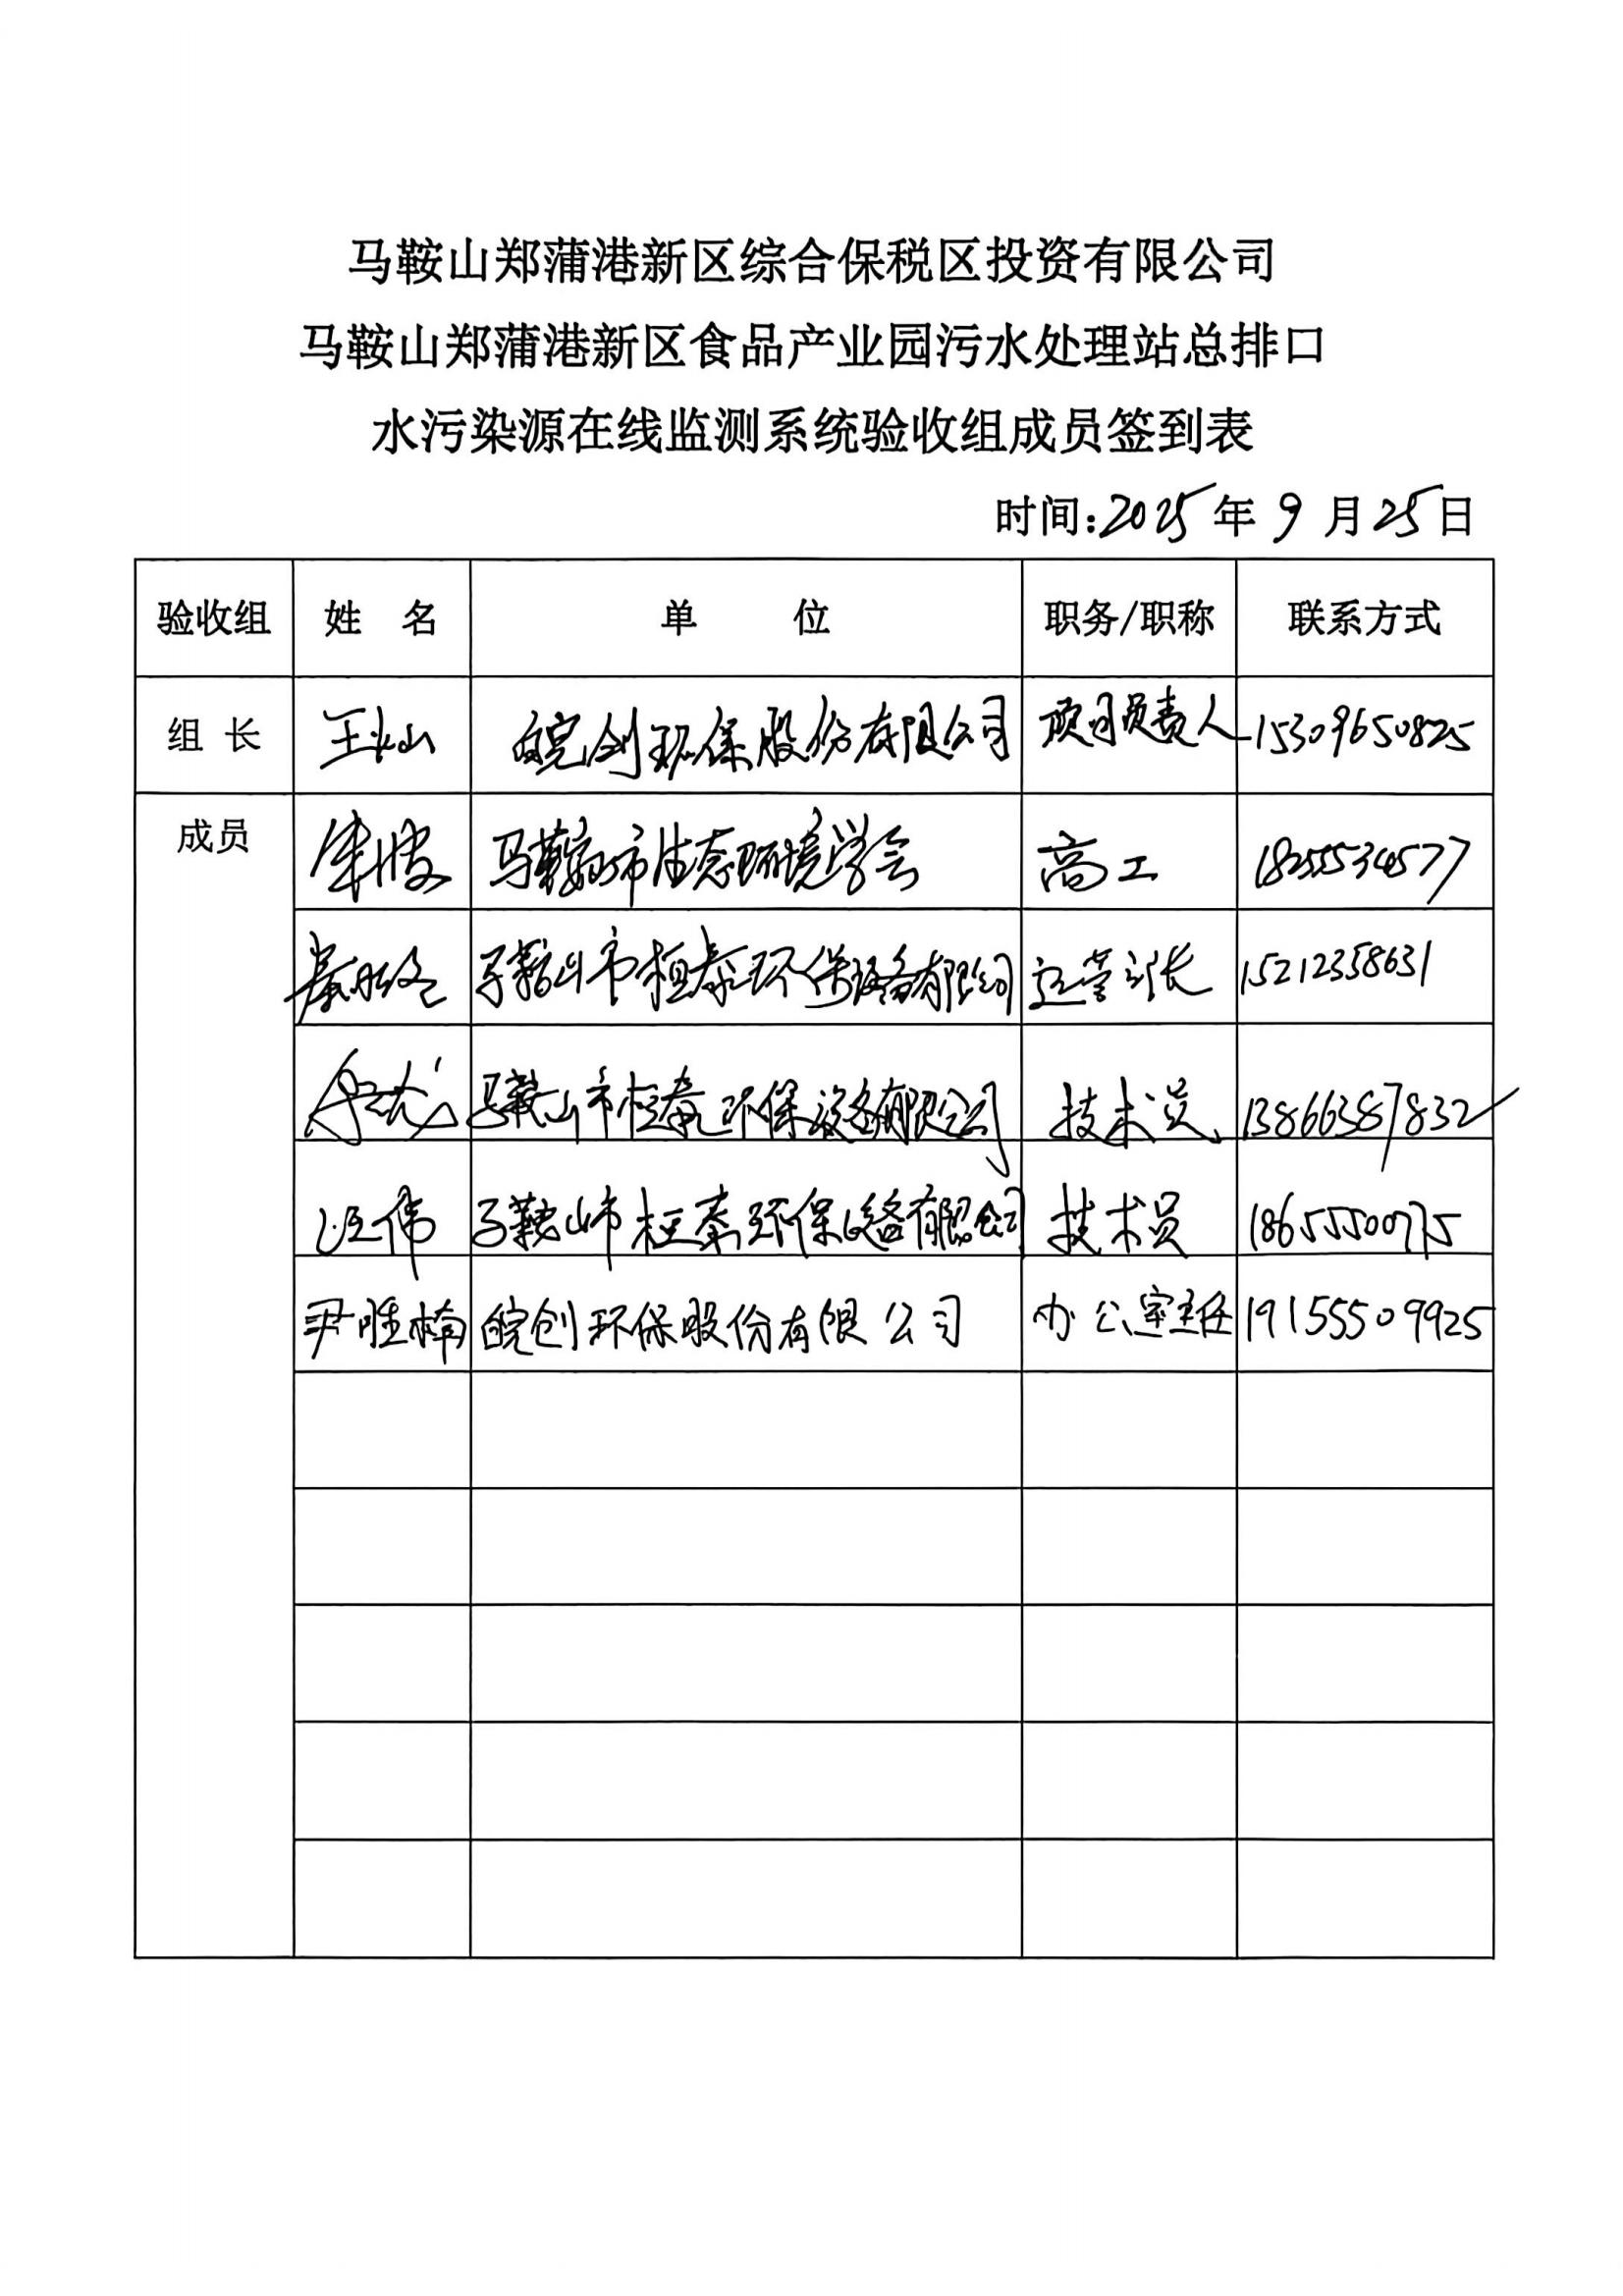 马鞍山郑蒲港新区综合保税区投资有限公司
马鞍山郑蒲港新区食品产业园污水处理站总排口
水污染源在线监测系统验收组成员签到表
时间:2025年9月25日
验收组 姓名 单位 职务/职称 联系方式
组长 皖创环保股份有限公司 项目负责人 15309650825
成员 马鞍山市生态环境学会 高工 18255534577
马鞍山市桓泰环保设备有限公司 15212358631
马鞍山市桓泰环保设备有限公司 技术员 13866387832
汪伟 马鞍山市桓泰环保设备有限公司 技术员 18655500775
尹胜楠 皖创环保股份有限公司 办公室主任 19155509925